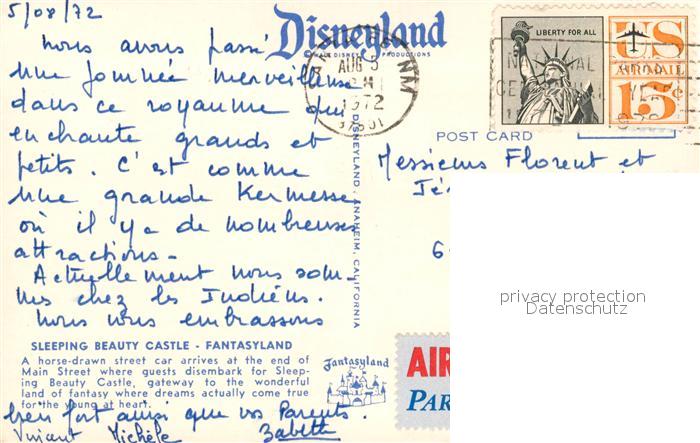 5/08/72
Disneyland
© WALT DISNEY PRODUCTIONS
AUG 5
1972
LIBERTY FOR ALL
US
AIR MAIL
15¢
POST CARD
Nous avons passé
une journée merveilleuse
dans ce royaume qui
enchante grands et
petits. C'est comme
une grande Kermesse
où il y a de nombreuses
attractions.
Actuellement nous som-
mes chez les Indiens.
Nous vous embrassons
DISNEYLAND, ANAHEIM, CALIFORNIA
Messieurs Florent et
Jé
6
privacy protection
Datenschutz
SLEEPING BEAUTY CASTLE - FANTASYLAND
A horse-drawn street car arrives at the end of
Main Street where guests disembark for Sleep-
ing Beauty Castle, gateway to the wonderful
land of fantasy where dreams actually come true
for the young at heart.
Fantasyland
AIR
PAR
bien fort ainsi que vos Parents.
Vincent Michèle Babette